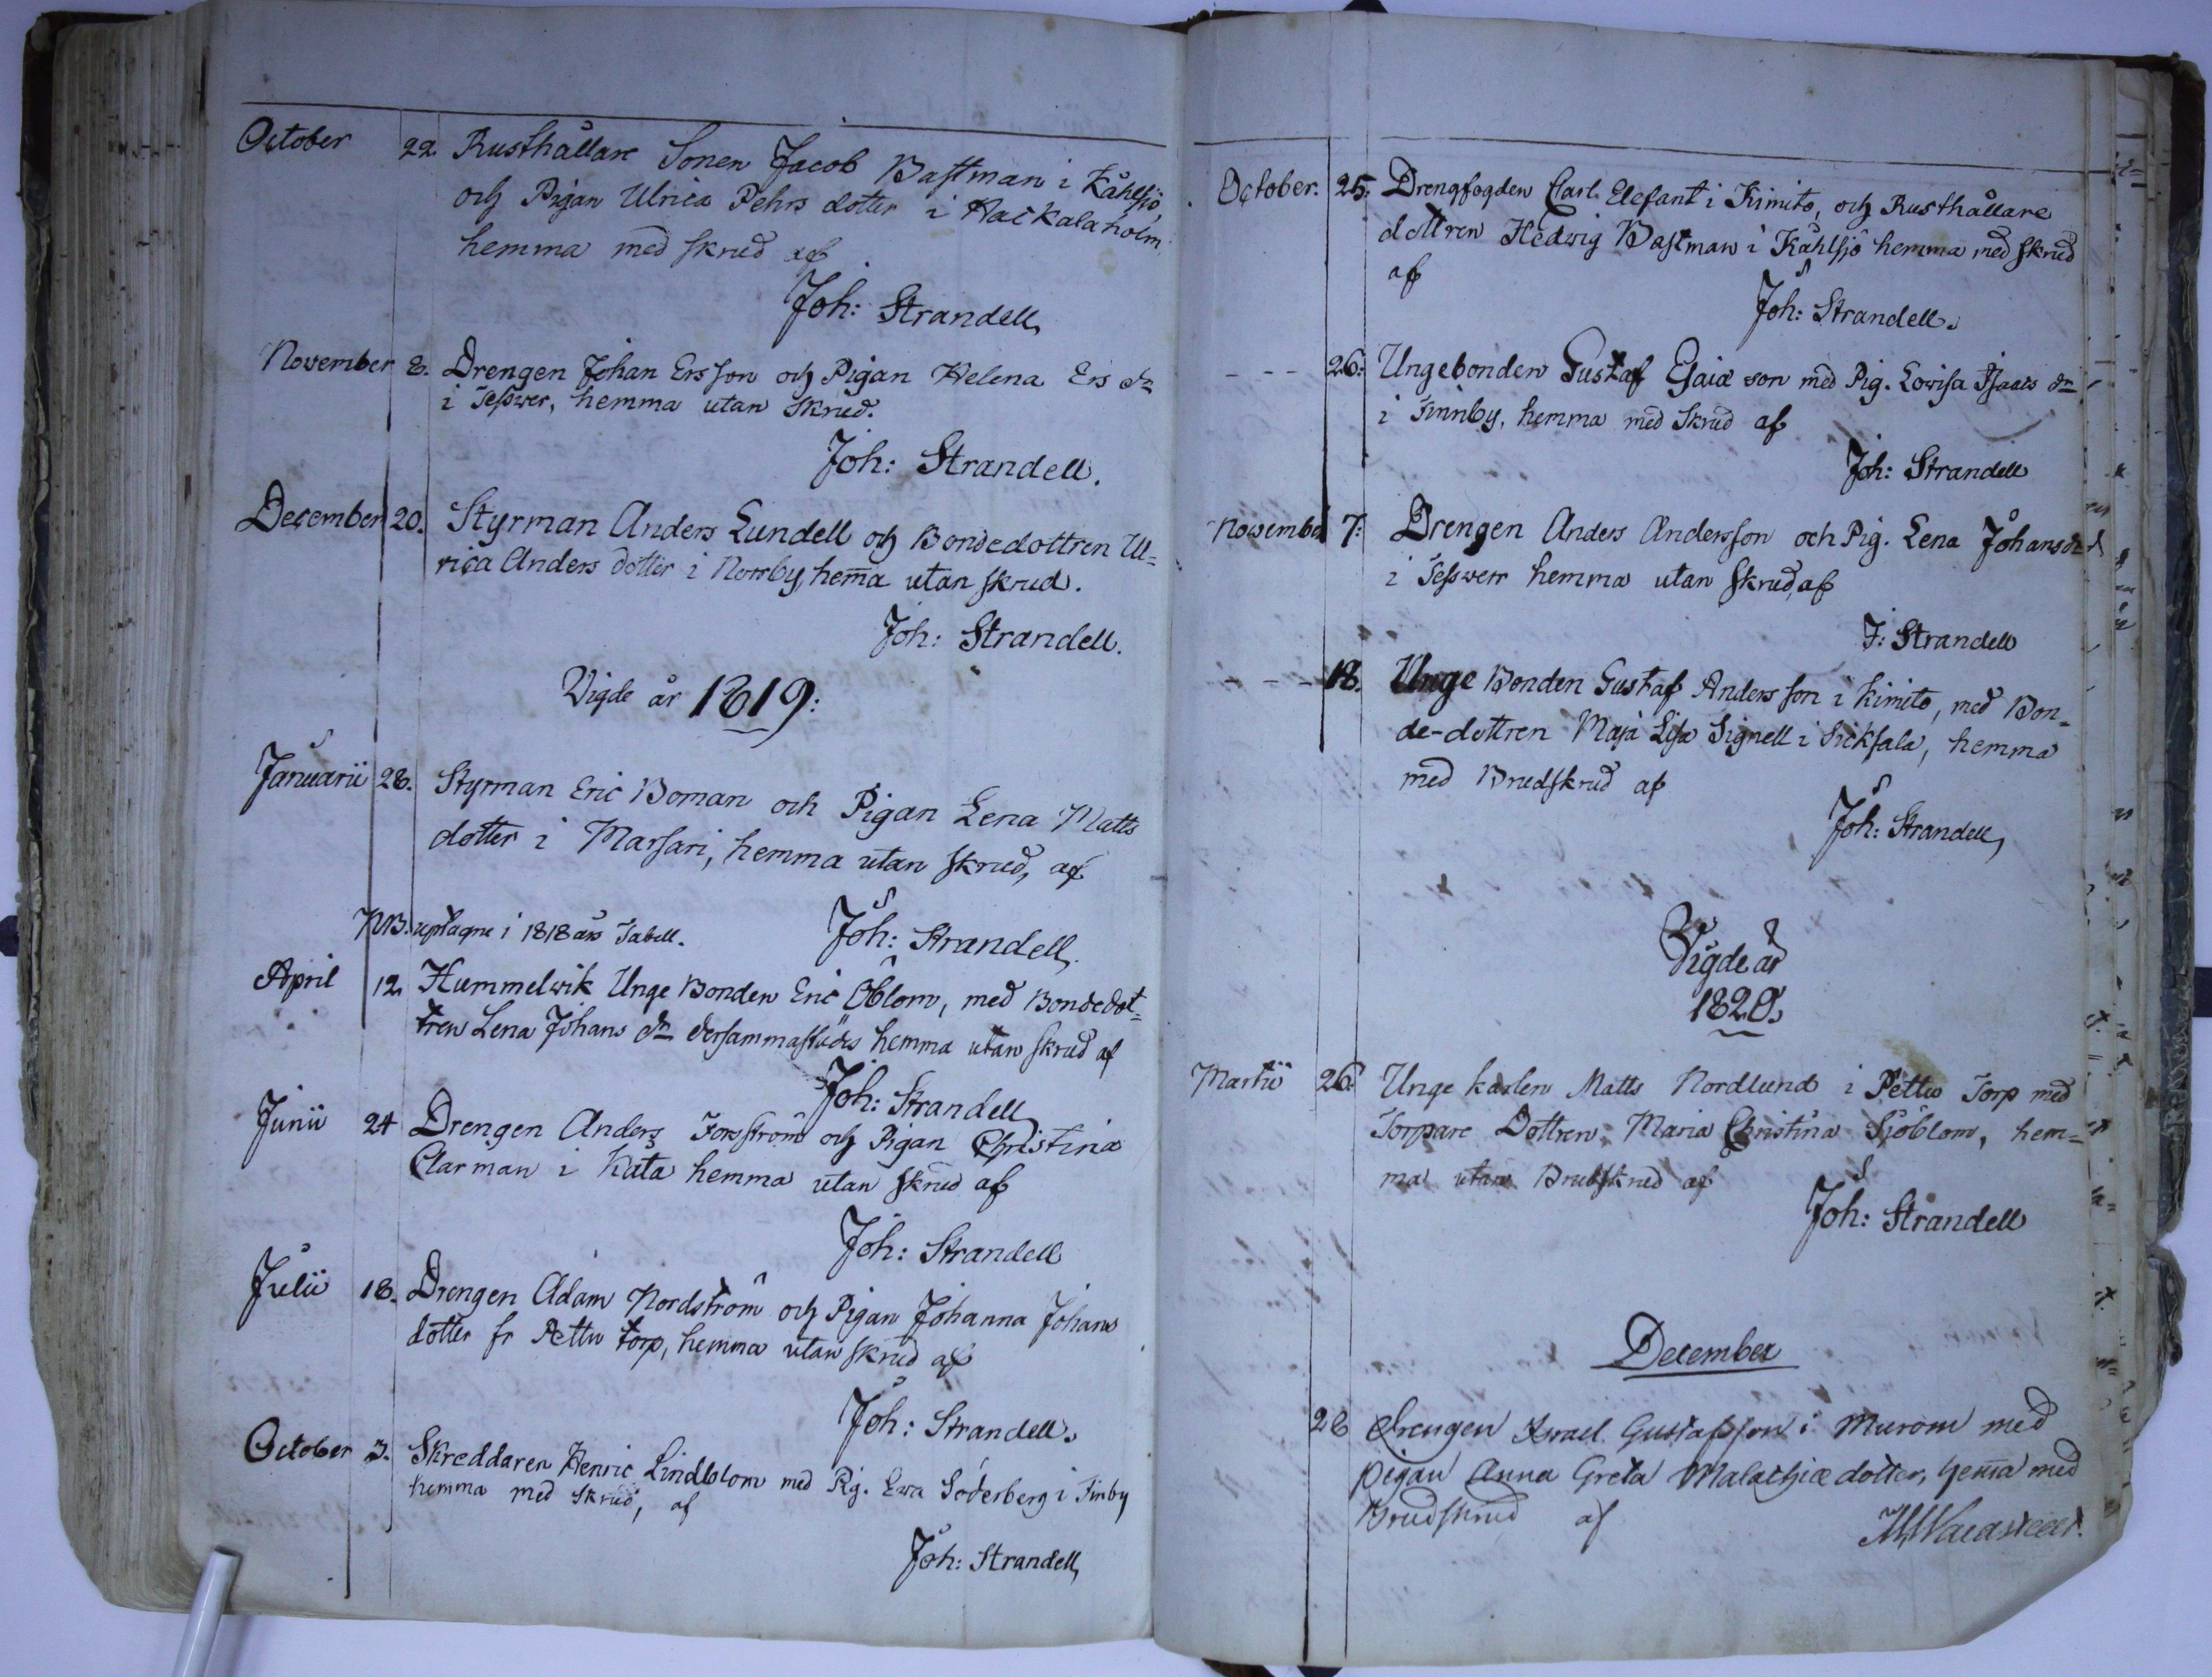 October 22. Rusthållare Sonen Jacob Bastman i Kåhlsjö
och Pigan Ulrica Pehrs dotter i Kackalaholm,
hemma med skrud af
Joh: Strandell,
November 8. Drengen Johan Ersson och Pigan Helena Ers dr
i Tessver, hemma utan Skrud.
Joh: Strandell.
December 20. Styrman Anders Lundell och Bondedottren Ul=
rica Anders dotter i Norrby, hema utan skrud.
Joh: Strandell.
Vigde år 1819:
Januarii 28. Styrman Eric Boman och Pigan Lena Matts
dotter i Marsari, hemma utan skrud, af
NB. uptagne i 1818 års Tabell. Joh: Strandell.
April 12. Hummelvik Unge Bonden Eric Öblom, med Bondedot=
tren Lena Johans dr dersammastädes hemma utan skrud af
Joh: Strandell
Junii 24 Drengen Anders Forsström och Pigan Christina
Clarman i Kata hemma utan skrud af
Joh: Strandell
Julii 18. Drengen Adam Nordström och Pigan Johanna Johans
dotter fr Pettu torp, hemma utan skrud af
Joh: Strandell.
October 3. Skreddaren Henric Lindblom med Pig. Ewa Söderberg i Finby
hemma med skrud, af
Joh: Strandell,
October. 25. Drengfogden Carl Elefant i Kimito, och Rusthållare
dottren Hedvig Bastman i Kåhlsjö hemma med skrud
af
Joh: Strandell.
- - - 26: Ungebonden Gustaf Esaiæ son med Pig. Lovisa Isaacs dr
i Finnby, hemma med Skrud af
Joh: Strandell
November 7: Drengen Anders Andersson och Pig. Lena Johans dr
i Tessverr hemma utan skrud, af
J: Strandell
- - - 18. Unge Bonden Gustaf Andersson i Kimito, med Bon=
de-dottren Maja Lisa Signell i Sicksala, hemma
med Brudskrud af
Joh: Strandell,
Vigde år
1820.
Martii 26. Unge karlen Matts Nordlund i Pettu Torp med
Torpare Dottren, Maria Christina Sjöblom, hem=
ma utan Brudskrud af
Joh: Strandell
December
28 Drengen Israel Gustafsson i Murom med
pigan Anna Greta Malachiæ dotter, hema med
Brudskrud af